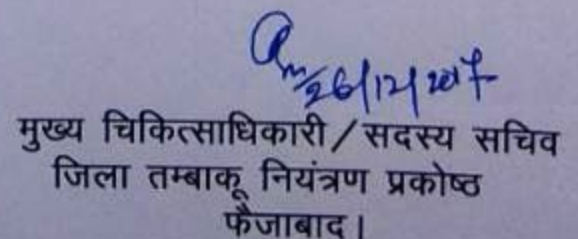 26/12/2017
मुख्य चिकित्साधिकारी/सदस्य सचिव
जिला तम्बाकू नियंत्रण प्रकोष्ठ
फैजाबाद।